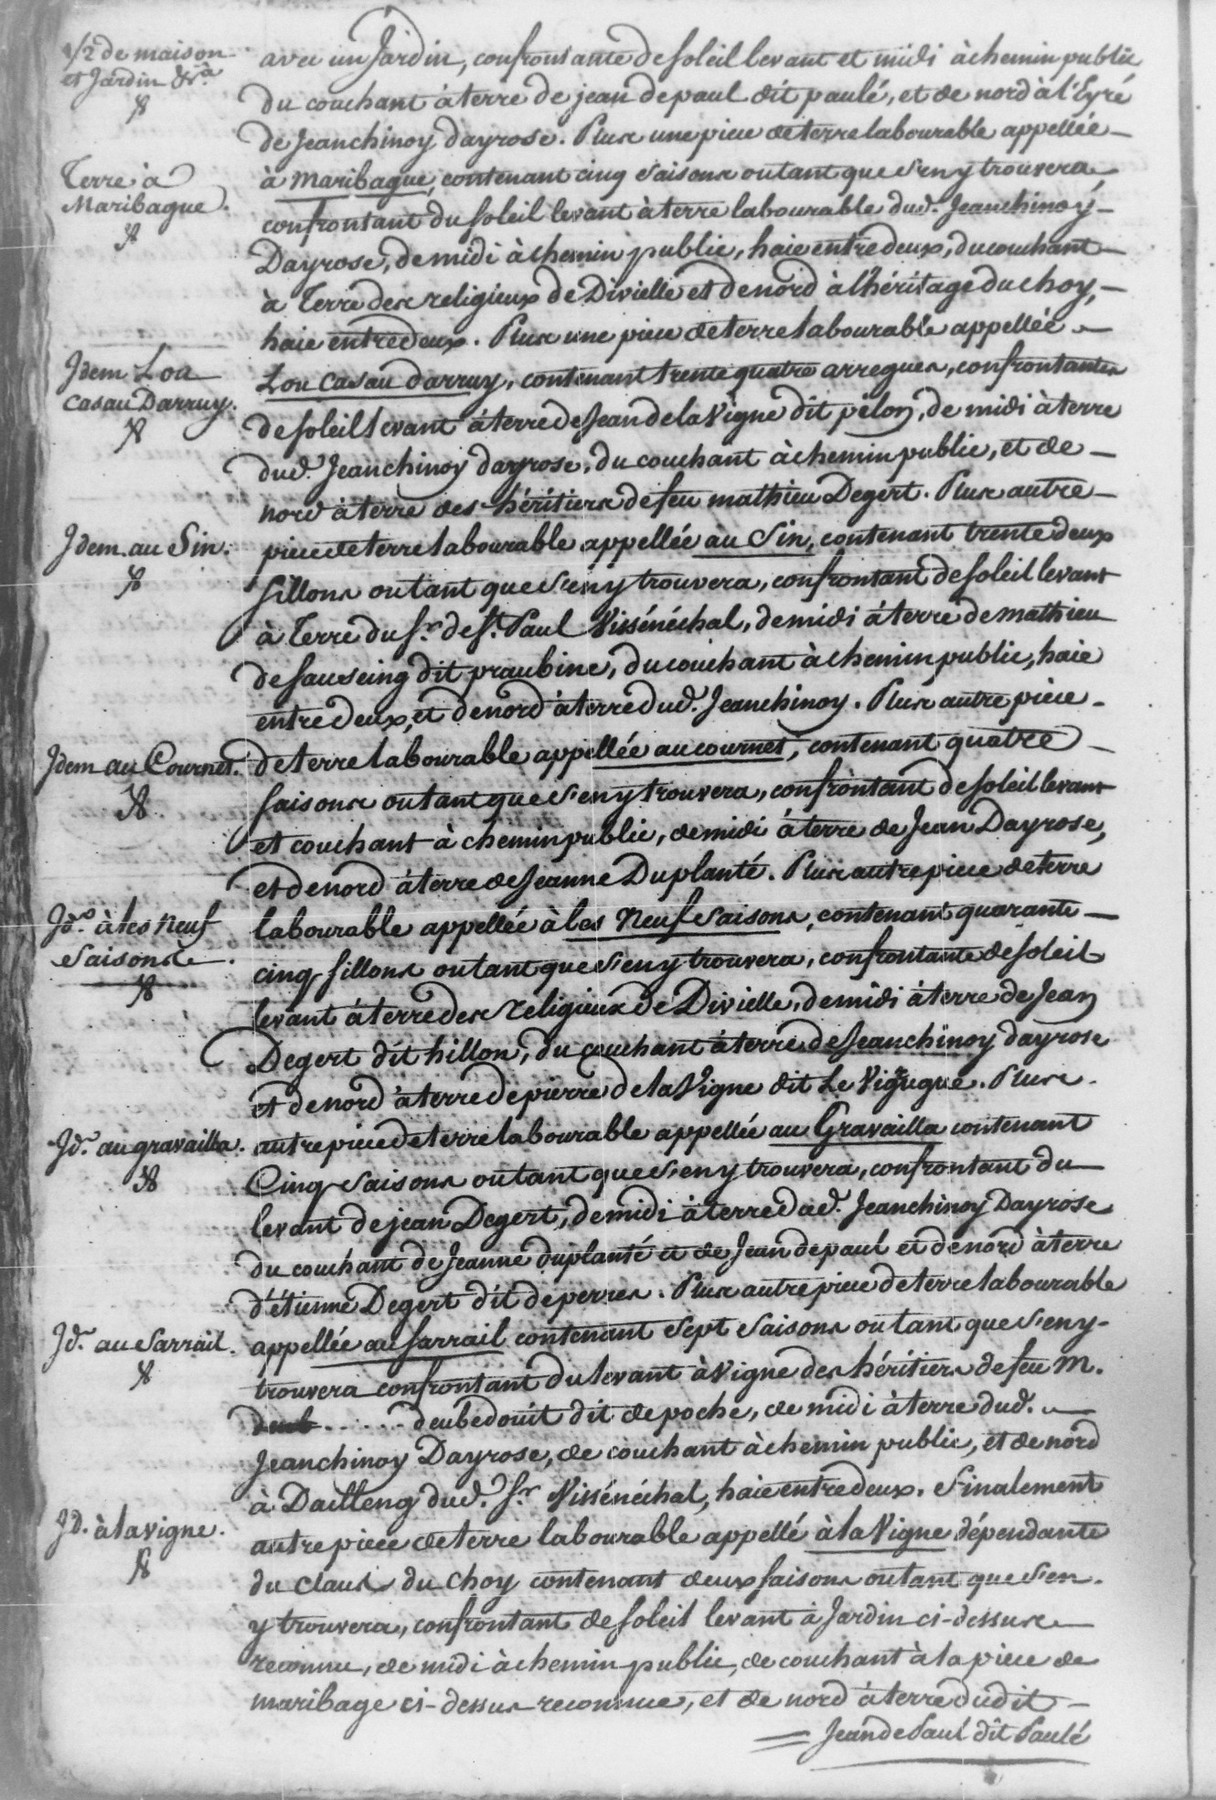 1/2 de maison
et Jardin &r.a
avec un Jardin, confrontante de soleil levant et midi à chemin public
du couchant à terre de jean depaul dit paulé, et de nord à l'Eyré
de Jeanchinoy dayrose. Plus une piece de terre labourable appellée
Terre à
Maribague.
à Maribague, contenant cinq saisons ou tant que s'en y trouvera,
confrontant du soleil levant à terre labourable dud. Jeanchinoy
Dayrose, de midi à chemin public, haie entredeux, du couchant
à Terre des religieux de Divielle et de nord à l'héritage du choy,
haie entredeux. Plus une piece de terre labourable appellée
Idem Lou
casau Darruy.
Lou Casau darruy, contenant trente quatre arregues, confrontantes
de soleil levant à terre de Jean de laVigne dit pelon, de midi à terre
dud. Jeanchinoy dayrose, du couchant à chemin public, et de
nord à terre des héritiers de feu mathieu Degert. Plus autre
Idem au Sin.
piece de terre labourable appellée au Sin, contenant trente deux
sillons ou tant que s'en y trouvera, confrontant de soleil levant
à Terre du Sr. de St. Paul Vissénéchal, de midi à terre de mathieu
desausseing dit praubine, du couchant à chemin public, haie
entredeux, et de nord à terre dud. Jeanchinoy. Plus autre piece
Idem au Cournet.
de terre labourable appellée au cournet, contenant quatre
saisons ou tant que s'en y trouvera, confrontant de soleil levant
et couchant à chemin public, de midi à terre de Jean Dayrose,
et de nord à terre de Jeanne Duplanté. Plus autre piece de terre
Id.o à les neuf
Saisons.
labourable appellée à les neuf saisons, contenant quarante
cinq sillons ou tant que s'en y trouvera, confrontante de soleil
levant à terre des religieux de Divielle, de midi à terre de Jean
Degert dit hillon, du couchant à terre de Jeanchinoy dayrose
et de nord à terre de pierre de laVigne dit Le Vigugue. Plus
Id. au gravailla.
autre piece de terre labourable appellée au Gravailla contenant
Cinq saisons ou tant que s'en y trouvera, confrontant du
levant de jean Degert, de midi à terre dud. Jeanchinoy Dayrose
du couchant de Jeanne duplanté et de Jean depaul et de nord à terre
d'étienne Degert dit deperres. Plus autre piece de terre labourable
Id. au Sarrail.
appellée au sarrail contenant sept saisons ou tant que s'en y
trouvera confrontant du levant à Vigne des héritiers de feu M.
deub ...... deubedout dit depoche, de midi à terre dud.
Jeanchinoy Dayrose, de couchant à chemin public, et de nord
à Dailleng dud. Sr. Vissénéchal, haie entredeux. Finalement
Id. à la vigne.
autre piece de terre labourable appellé à la Vigne dépendante
du claus du choy contenant deux saisons ou tant que s'en
y trouvera, confrontant de soleil levant à Jardin ci-dessus
reconnu, de midi à chemin public, de couchant à la piece de
maribage ci-dessus reconnue, et de nord à terre dudit
Jean de Paul dit Paulé